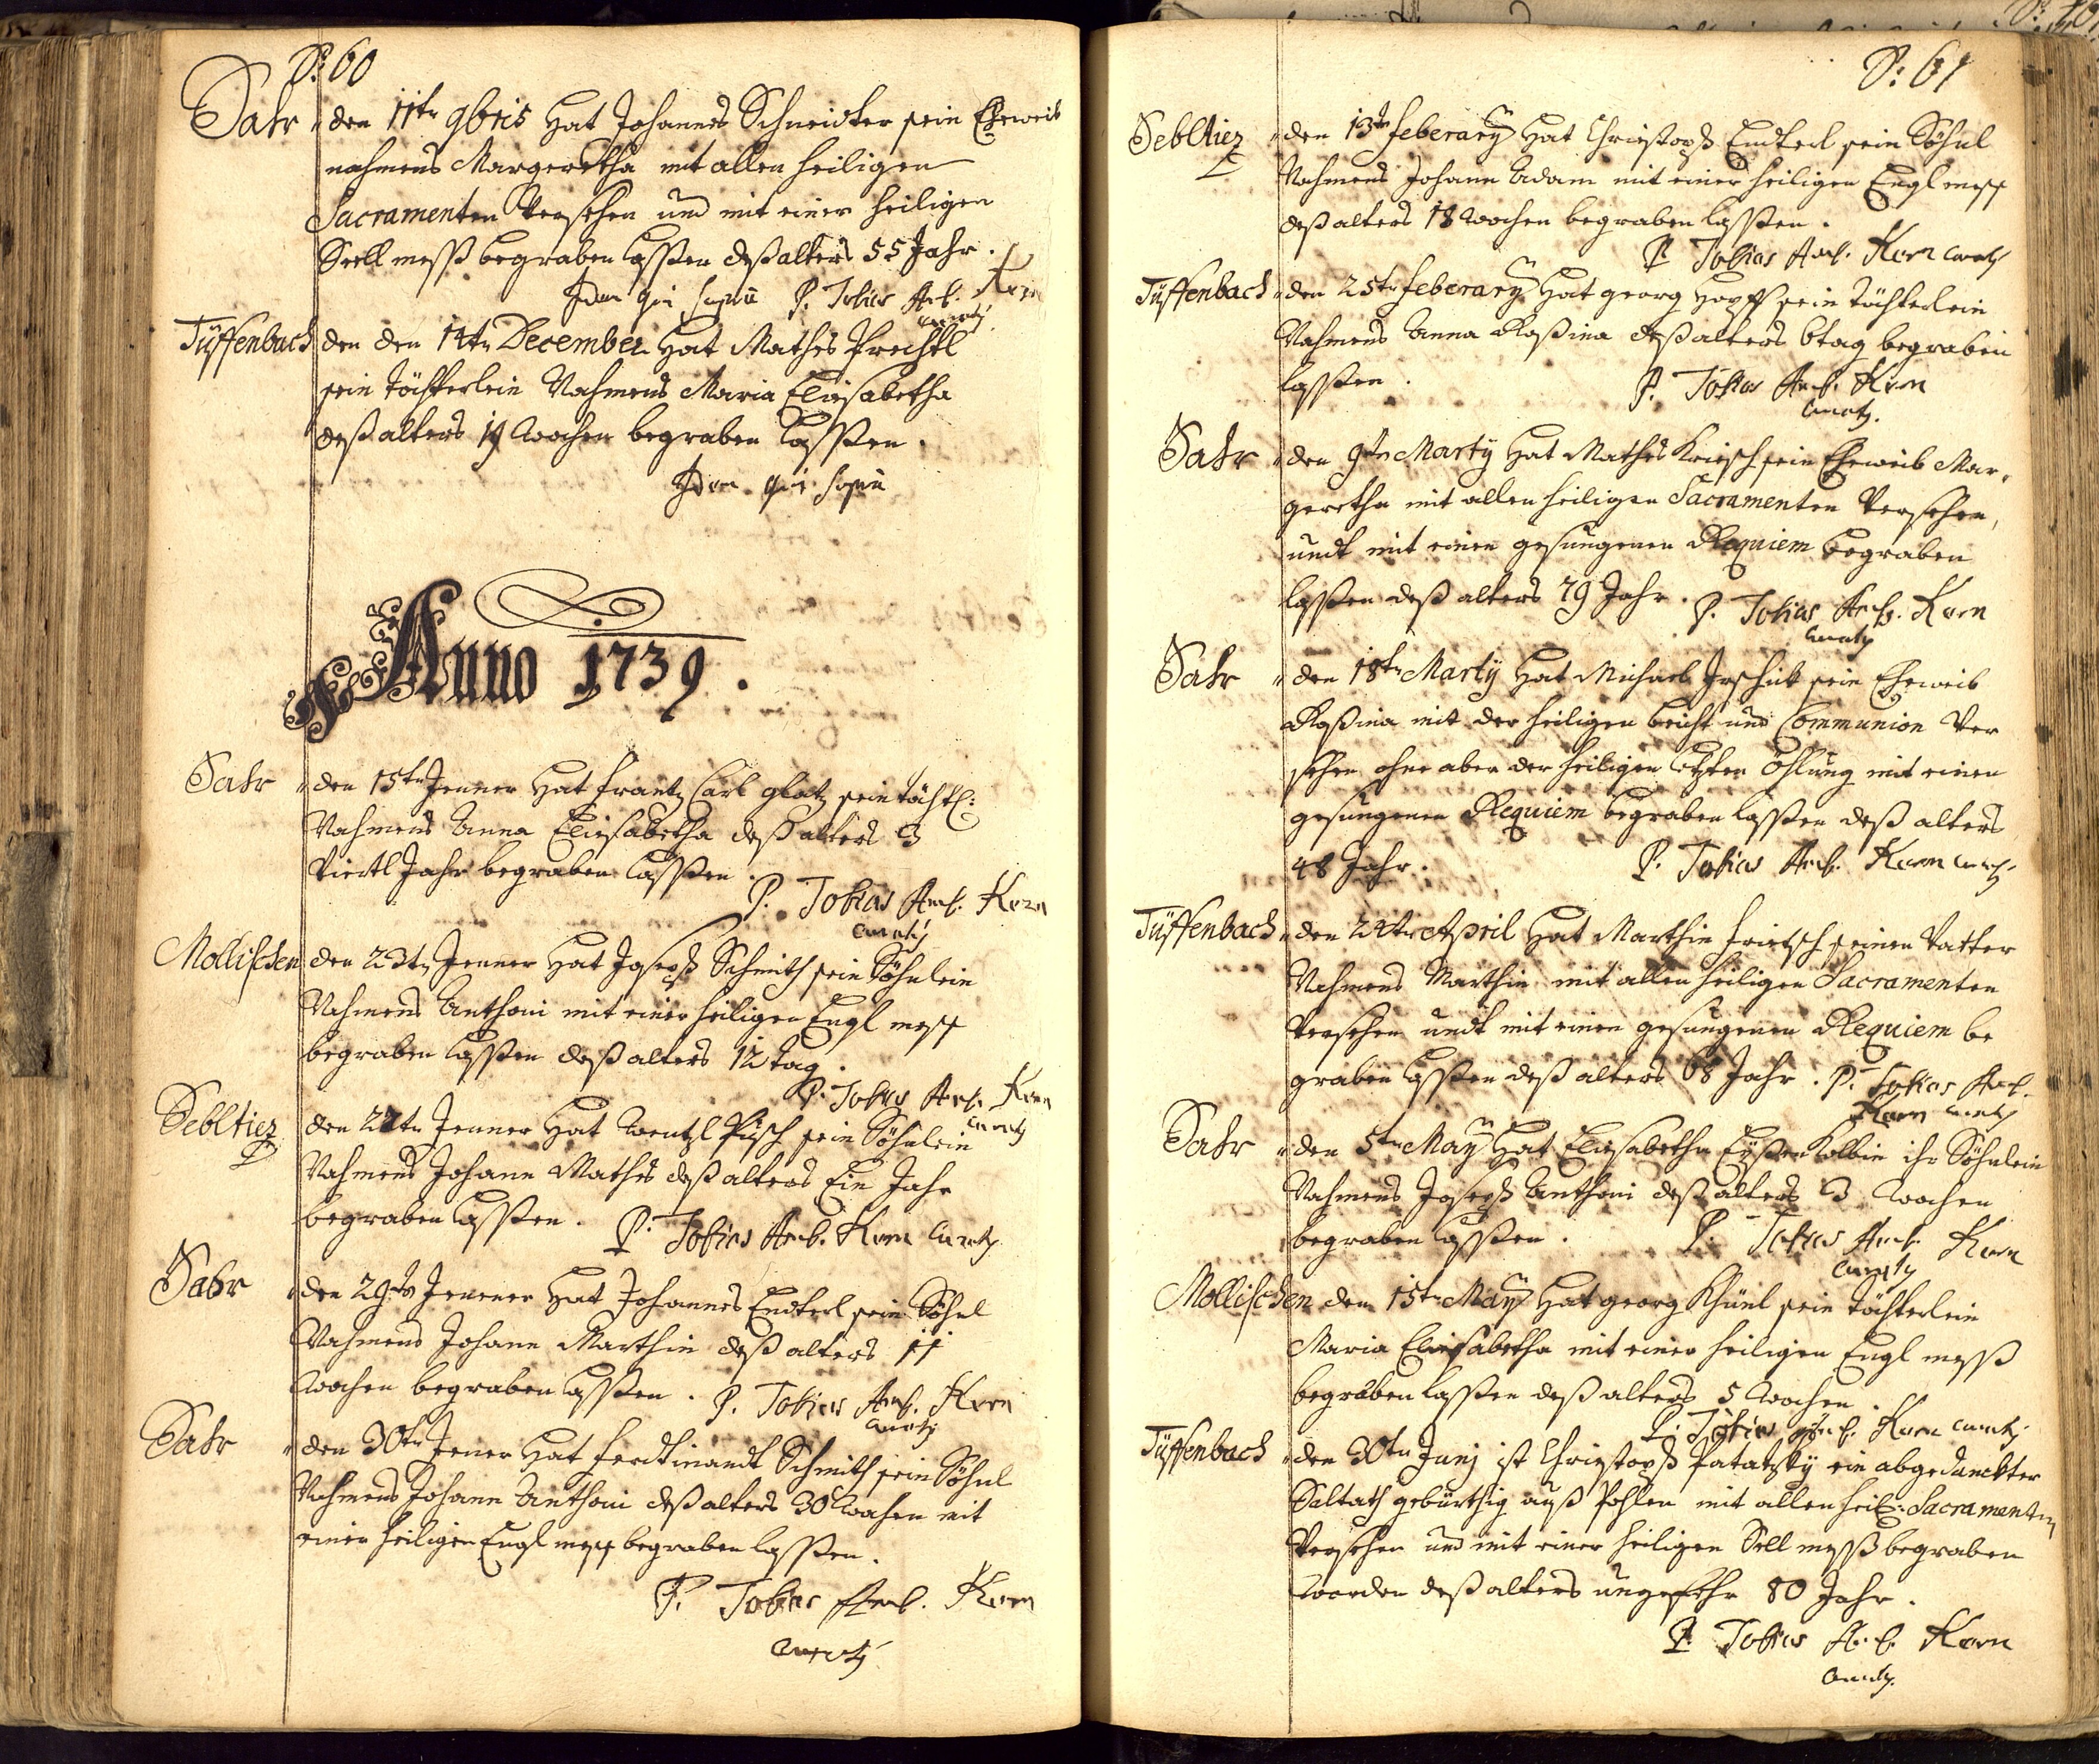 P: 60
Sahr den 11tn 9bris hat Johannes Schneider sein Eheweib
nahmens Margeretha mit allen heiligen
Sacramenten Versehen und mit einer heiligen
Seell mess begraben lassen dess alters 55 Jahr.
Idem qui supra P. Tobias Amb. Korn
Curaty
Tüffenbach den den 14tn December hat Mathes Prechtl
sein töchterlein Nahmens Maria Eliesabetha
dess alters 19 wochen begraben lassen.
Idem qui supra
Anno 1739.
Sahr den 15tn Jenner hat Frantz Carl Glatz sein töchtl:
Nahmens Anna Eliesabetha dess alters 3
Viertl Jahr begraben lassen.
P. Tobias Amb. Korn
Curaty
Mollischen den 23tn Jenner hat Joseph Schmith sein Söhnlein
Nahmens Anthoni mit einer heiligen Engl mess
begraben lassen dess alters 12 tag.
P. Tobias Amb. Korn
Curaty
Sebltiez den 27tn Jenner hat Wentzl Püsch sein Söhnlein
Nahmens Johann Mathes dess alters Ein Jahr
begraben lassen. P. Tobias Amb. Korn Curaty
Sahr den 29tn Jenener hat Johannes Endterl sein Söhnl
Nahmens Johann Marthin dess alters 11
Wochen begraben lassen. P. Tobias Amb. Korn
Curaty
Sahr den 30tn Jener hat Ferdtinandt Schmith sein Söhnl
Nahmens Johann Anthoni dess alters 30 Wochen mit
einer heiligen Engl mess begraben lassen.
P. Tobias Amb. Korn
Curaty
P: 61
Sebltiez den 13tn Feberary hat Christoph Endterl sein Söhnl
Nahmens Johann Adam mit einer heiligen Engl mess
dess alters 18 wochen begraben lassen.
P Tobias Amb. Korn Curaty
Tüffenbach den 25tn Feberary hat georg Hopff sein töchterlein
Nahmens Anna Rosina dess alters 6 tag begraben
lassen. P. Tobias Amb. Korn
Curaty.
Sahr den 9tn Marty hat Mathes Kriesch sein Eheweib Mar,
geretha mit allen heiligen Sacramenten Versehen,
undt mit einen gesungenen Requiem begraben
lassen dess alters 79 Jahr. P. Tobias Amb. Korn
Curaty
Sahr den 18tn Marty hat Michael Jeschik sein Eheweib
Rosina mit der heiligen beicht und Communion Ver
sehen ohne aber der heiligen letzten Öhlung mit einen
gesungenen Requiem begraben lassen dess alters
48 Jahr. P. Tobias Amb. Korn Curaty
Tüffenbach den 24tn April hat Marthin Frietsch seinen Vatter
Nahmens Marthin mit allen heiligen Sacramenten
Versehen undt mit einen gesungenen Requiem be
graben lassen dess alters 68 Jahr. P. Tobias Amb.
Korn Curaty
Sahr den 5tn May hat Eliesabetha Eyssenkolbin ihr Söhnlein
Nahmens Joseph Anthoni dess alters 3 Wochen
begraben lassen. P. Tobias Amb. Korn
Curaty
Mollischen den 15tn May hat georg Khünl sein töchterlein
Maria Eliesabetha mit einer heiligen Engl mess
begraben lassen dess alters 5 Wochen.
P. Tobias Amb. Korn Curaty
Tüffenbach den 30tn Junj ist Christoph Patatzky ein abgedanckter
Soltath gebürthig auss Pohlen mit allen heil: Sacramenten
Versehen und mit einer heiligen Sell mess begraben
worden dess alters ungefehr 80 Jahr.
P. Tobias Amb. Korn
Curaty.